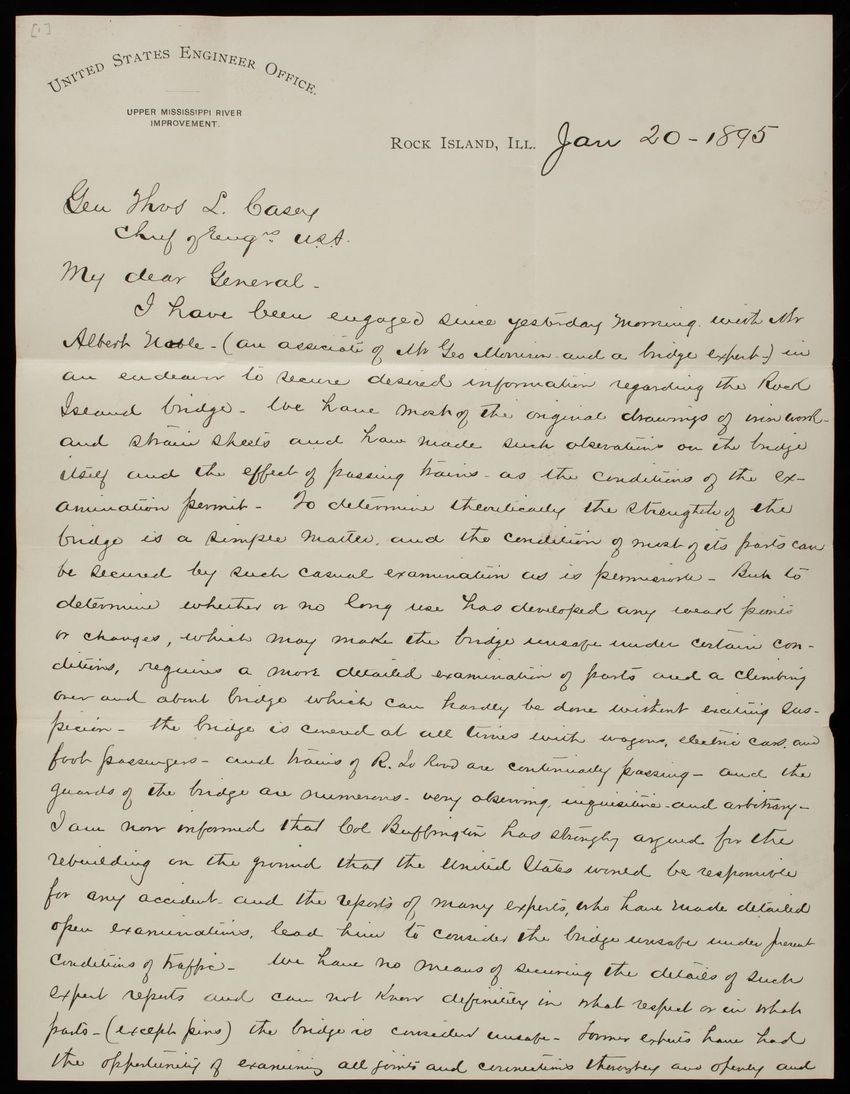 [1]
UNITED STATES ENGINEER OFFICE.
UPPER MISSISSIPPI RIVER
IMPROVEMENT.
ROCK ISLAND, ILL. Jan 20-1895
Gen Thos L. Casey
Chief of Engrs U.S.A.
My dear General-
I have been engaged since yesterday morning with Mr
Albert Noble-(an associate of Mr Geo Morrison and a bridge expert-) in
an endeavor to secure desired information regarding the Rock
Island bridge- We have most of the original drawings of iron work-
and strain sheets and have made such observations on the bridge
itself and the effect of passing trains- as the conditions of the ex-
amination permit- To determine theoretically the strength of the
bridge is a simple matter, and the condition of most of its parts can
be secured by such casual examination as is permissible- But to
determine whether or no long use has developed any weak points
or changes, which may make the bridge unsafe under certain con-
ditions, requires a more detailed examination of parts and a climbing
over and about bridge which can hardly be done without exciting sus-
picion- the bridge is covered at all times with wagons, electric cars, and
foot passengers- and trains of R. Id Road are continually passing- and the
guards of the bridge are numerous- very observing, inquisitive-and arbitrary-
I am now informed that Col Buffington has strongly argued for the
rebuilding on the ground that the United States would be responsible
for any accident- and the reports of many experts, who have made detailed
open examinations, lead him to consider the bridge unsafe under present
conditions of traffic- We have no means of securing the details of such
expert reports and can not know definitely in what respect or in what
parts-(except pins) the bridge is considered unsafe- Former experts have had
the opportunity of examining all joints and connections thoroughly and openly and